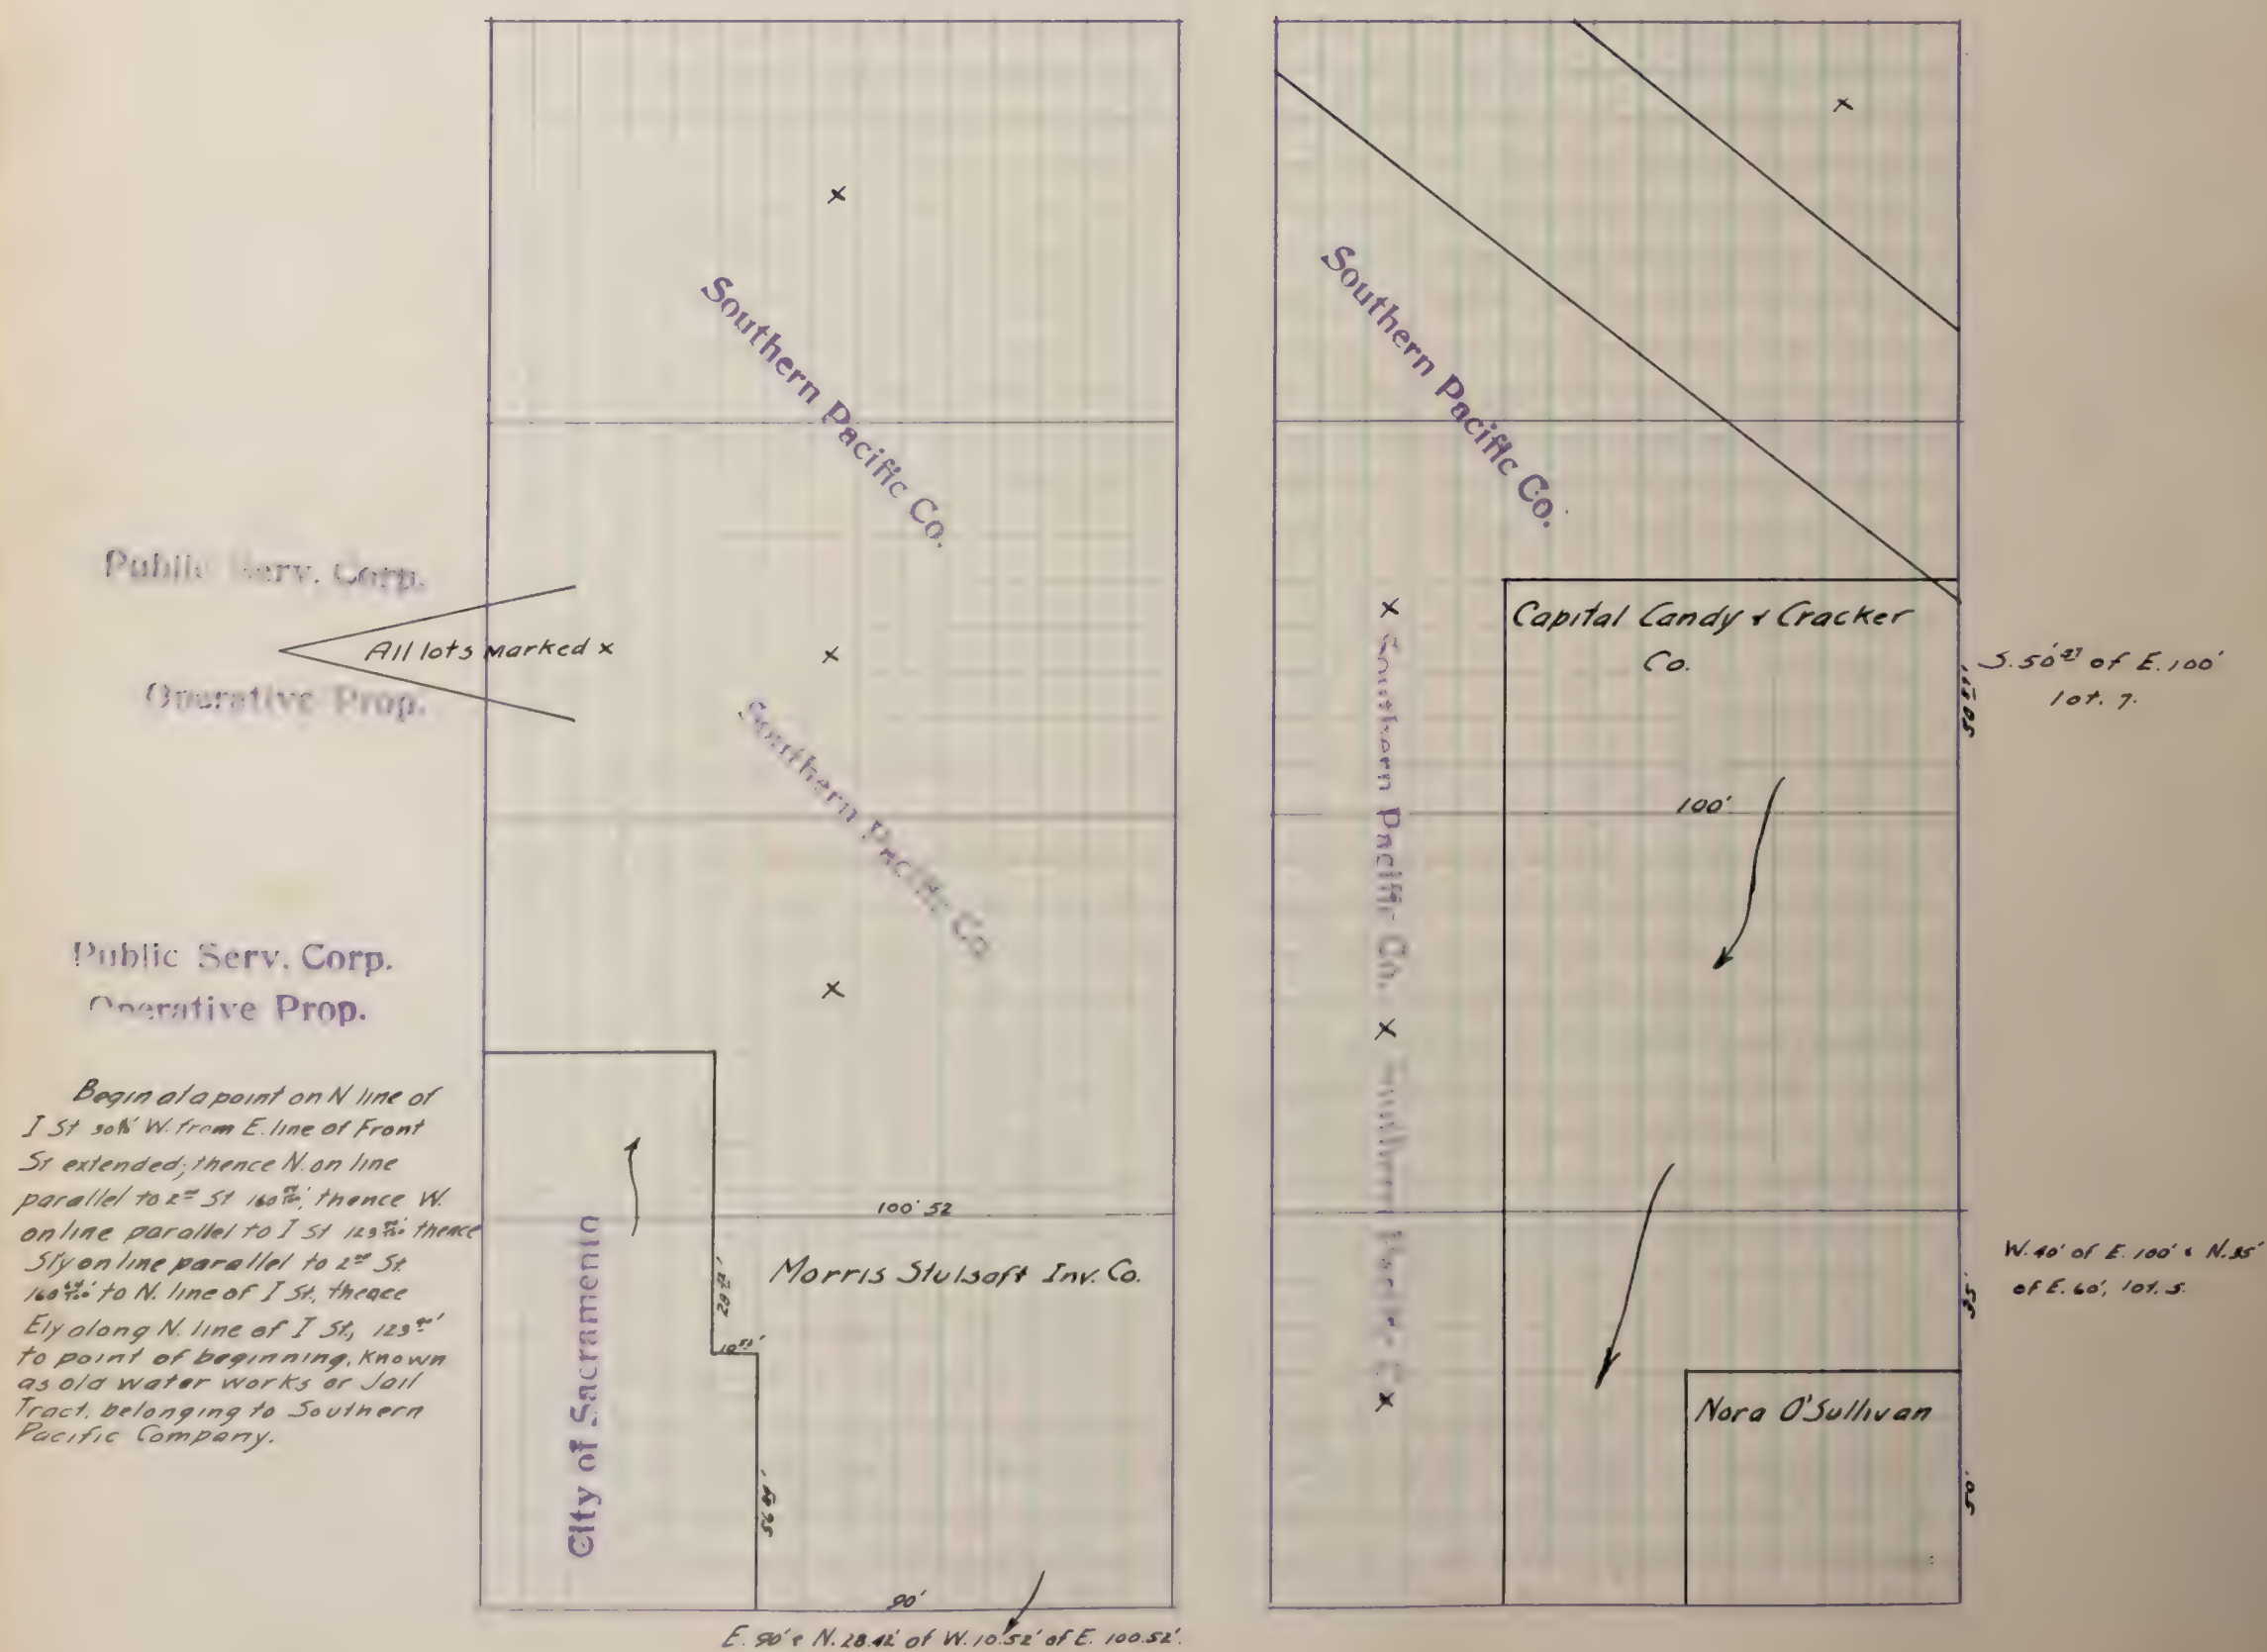 Public Serv. Corp.
All lots marked x
Operative Prop.
Public Serv. Corp.
Operative Prop.
Begin at a point on N line of
I St W. from E. line of Front
St extended; thence N. on line
parallel to 2nd St thence W.
on line parallel to I St thence
S'ly on line parallel to 2nd St.
to N. line of I St., thence
Ely along N. line of I St.,
to point of beginning. Known
as old water works or Jail
Tract, belonging to Southern
Pacific Company.
x
Southern Pacific Co.
x
Southern Pacific Co.
x
City of Sacramento
100' 52
28 42'
Morris Stulsaft Inv. Co.
10 52'
90'
E. 90' & N. 28.42' of W. 10.52' of E. 100.52'.
x
Southern Pacific Co.
x Southern Pacific Co. x Southern Pacific Co. x
Capital Candy & Cracker
Co.
S. 50' of E. 100'
lot. 7.
100'
W. 40' of E. 100' & N. 35'
of E. 60', lot. 5.
35'
Nora O'Sullivan
50'